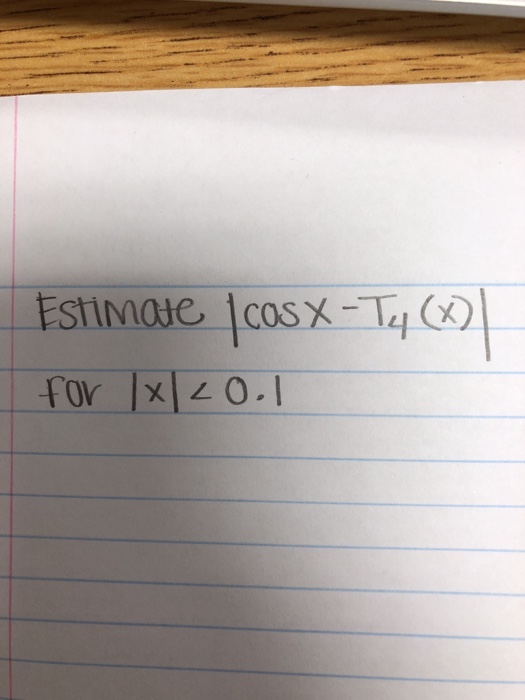 Estimate |cosx-T₄(x)|
for |x|<0.1